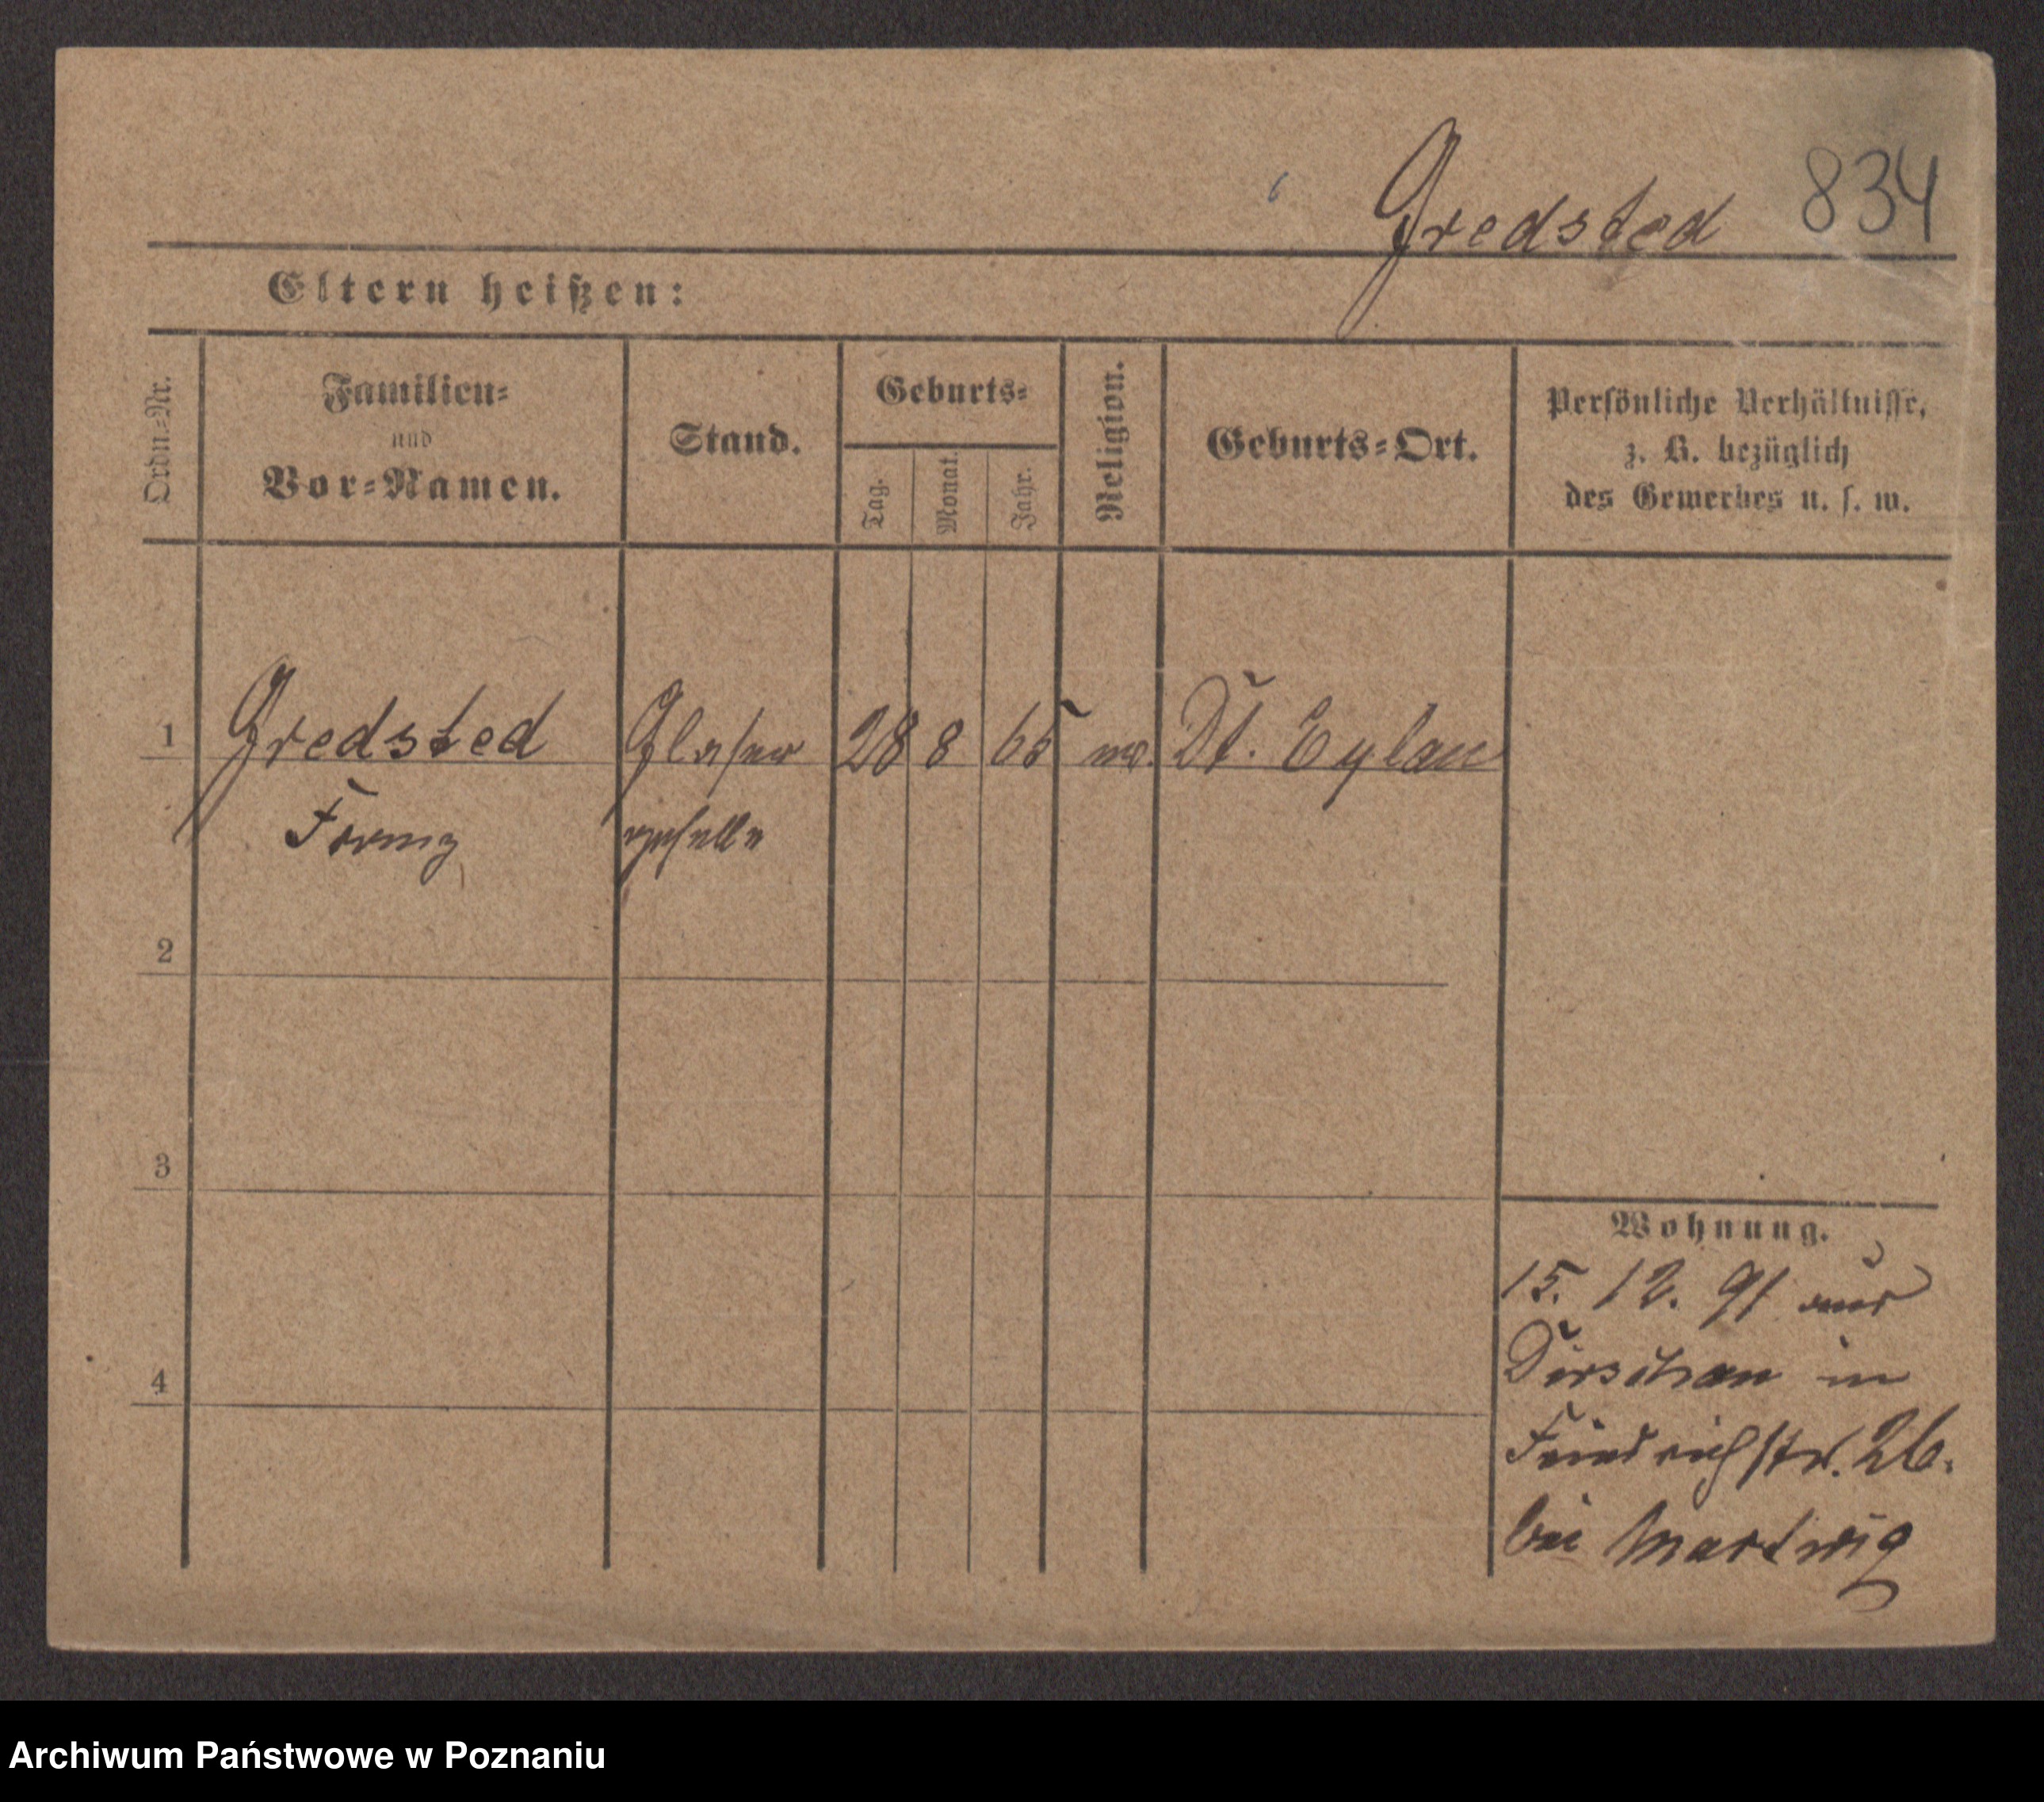 Gredsted 834
Eltern heißen:
Ordn.-Nr.
Familien-
und
Vor-Namen.
Stand.
Geburts-
Tag.
Monat.
Jahr.
Religion.
Geburts-Ort.
Persönliche Verhältnisse,
z. B. bezüglich
des Gewerbes u. s. w.
1 Gredsted Glaser 28 8 65 Dt. Eylau
Franz geselle
2
3
4
Wohnung.
15. 12. 91 aus
Dirschau in
Friedrichstr. 26.
bei Martwig
Archiwum Państwowe w Poznaniu